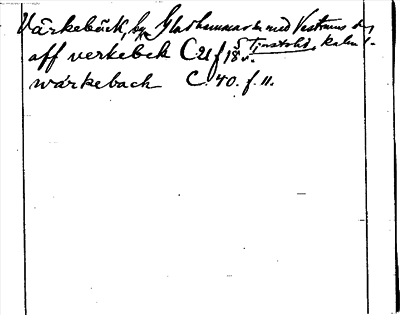 Värkebäck, by, Gladhammar m med Vestrums sn
aff verkebek C 21 f 18 v. 5 Tjustolds. Kalm l.
wärkebach C. 40. f. 11.